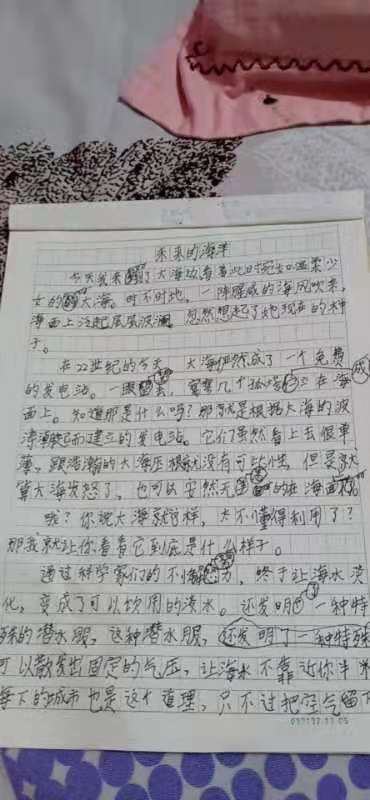 未来的海洋
今天我来到了大海边看着此时宛如温柔少
女的大海。时不时地,一阵腥咸的海风吹来,
海面上泛起层层波澜,忽然想起了她现在的样
子。
在22世纪的今天,大海俨然成了一个免费
的发电站。一眼望去,几个孤立在海
面上。知道那是什么吗?那就是根据大海的波
涛而建立的发电站。它们虽然看上去很单
薄,跟浩瀚的大海压根就没有可比性,但要就
算大海发怒了,也可以安然无的在海面
哦?你说大海就这样,太不懂得利用了?
那我就让你看看它到底是什么样子。
通过科学家们的不懈努力,终于让海水淡
化,变成了可以饮用的淡水。还发明一种特
殊的潜水服,这种潜水服,还发明了一种特殊
可以散发出固定的气压,让海水不靠近你半米
海下的城市也是这个道理,只不过把空气留下